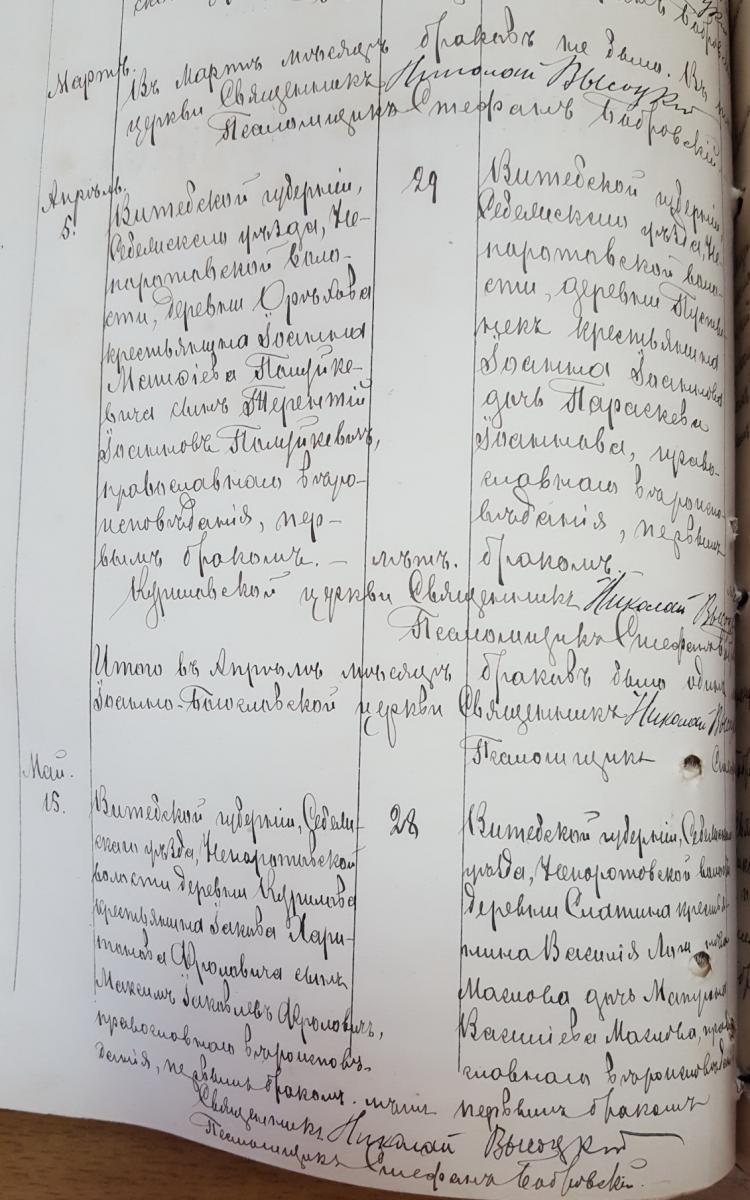 Мартъ.
Въ Мартѣ мѣсяцѣ браковъ не было. Въ
церкви Священникъ Николай Высоцкій
Псаломщикъ Стефанъ Бобровскій.
Апрѣль.
5.
Витебской губерніи,
Себежскаго уѣзда, Не-
поротовской воло-
сти, деревни Орѣхова
крестьянина Іоанна
сынъ Терентій
Іоанновъ
православнаго вѣро-
исповѣданія, пер-
вымъ бракомъ. –
29
лѣтъ.
Витебской губерніи,
Себежскаго уѣзда, Не-
поротовской воло-
сти, деревни
крестьянина
Іоанна Іоаннова
дочь Параскева
Іоаннова, право-
славнаго вѣроиспо-
вѣданія, первымъ
бракомъ. –
церкви Священникъ Николай Высоцкій
Псаломщикъ Стефанъ
Итого въ Апрѣлѣ мѣсяцѣ браковъ было одинъ
Іоанно-Богословской церкви Священникъ Николай
Псаломщикъ
Май.
15.
Витебской губерніи, Себеж-
скаго уѣзда, Непоротовской
волости деревни Курилова
крестьянина Іакова Хари-
тонова Фроловича сынъ
Максимъ Іаковлевъ Фроловичъ,
православнаго вѣроисповѣ-
данія, первымъ бракомъ.
28
лѣтъ
Витебской губерніи, Себежскаго
уѣзда, Непоротовской волости
деревни Слатина крестья-
нина Василія
Маслова дочь Матрона
Василіева Маслова, право-
славнаго вѣроисповѣданія
первымъ бракомъ
Священникъ Николай Высоцкій
Псаломщикъ Стефанъ Бобровскій.